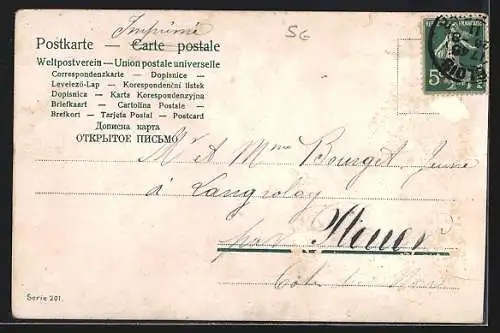 Imprimé
SG
Postkarte — Carte postale
Weltpostverein — Union postale universelle
Correspondenzkarte — Dopisnice
Levelező-Lap — Korespondenční lístek
Dopisnica — Karta Korespondenzyjna
Briefkaart — Cartolina Postale
Brefkort — Tarjeta Postal — Postcard
Дописна карта
ОТКРЫТОЕ ПИСЬМО
5
Mr et Mme Bourget Jeune
à Langrolay
par
Côtes du Nord
Serie 201.